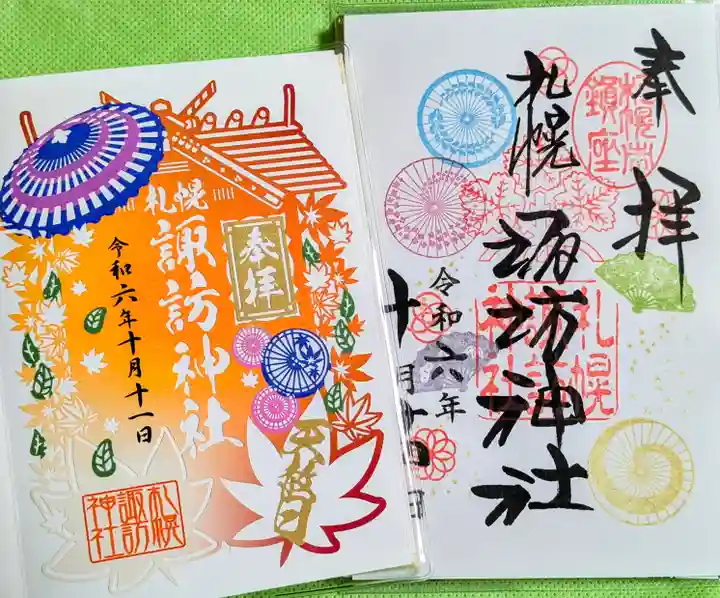 札幌
諏訪神社
奉拝
令和六年十月十一日
天赦日
札幌
諏訪
神社
奉拝
鎮座
札幌諏訪神社
札幌
諏訪
神社
令和六年
十月